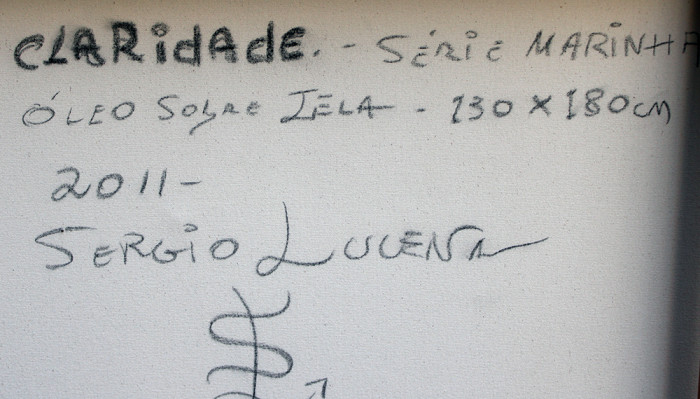 CLARIdAdE. - SÉRIE MARINHA
ÓLEO SOBRE TELA - 130 X 180 cm
2011 -
SERGIO LUCENA